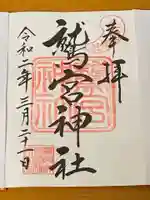 奉拝
鷲宮神社
令和二年三月二十一日